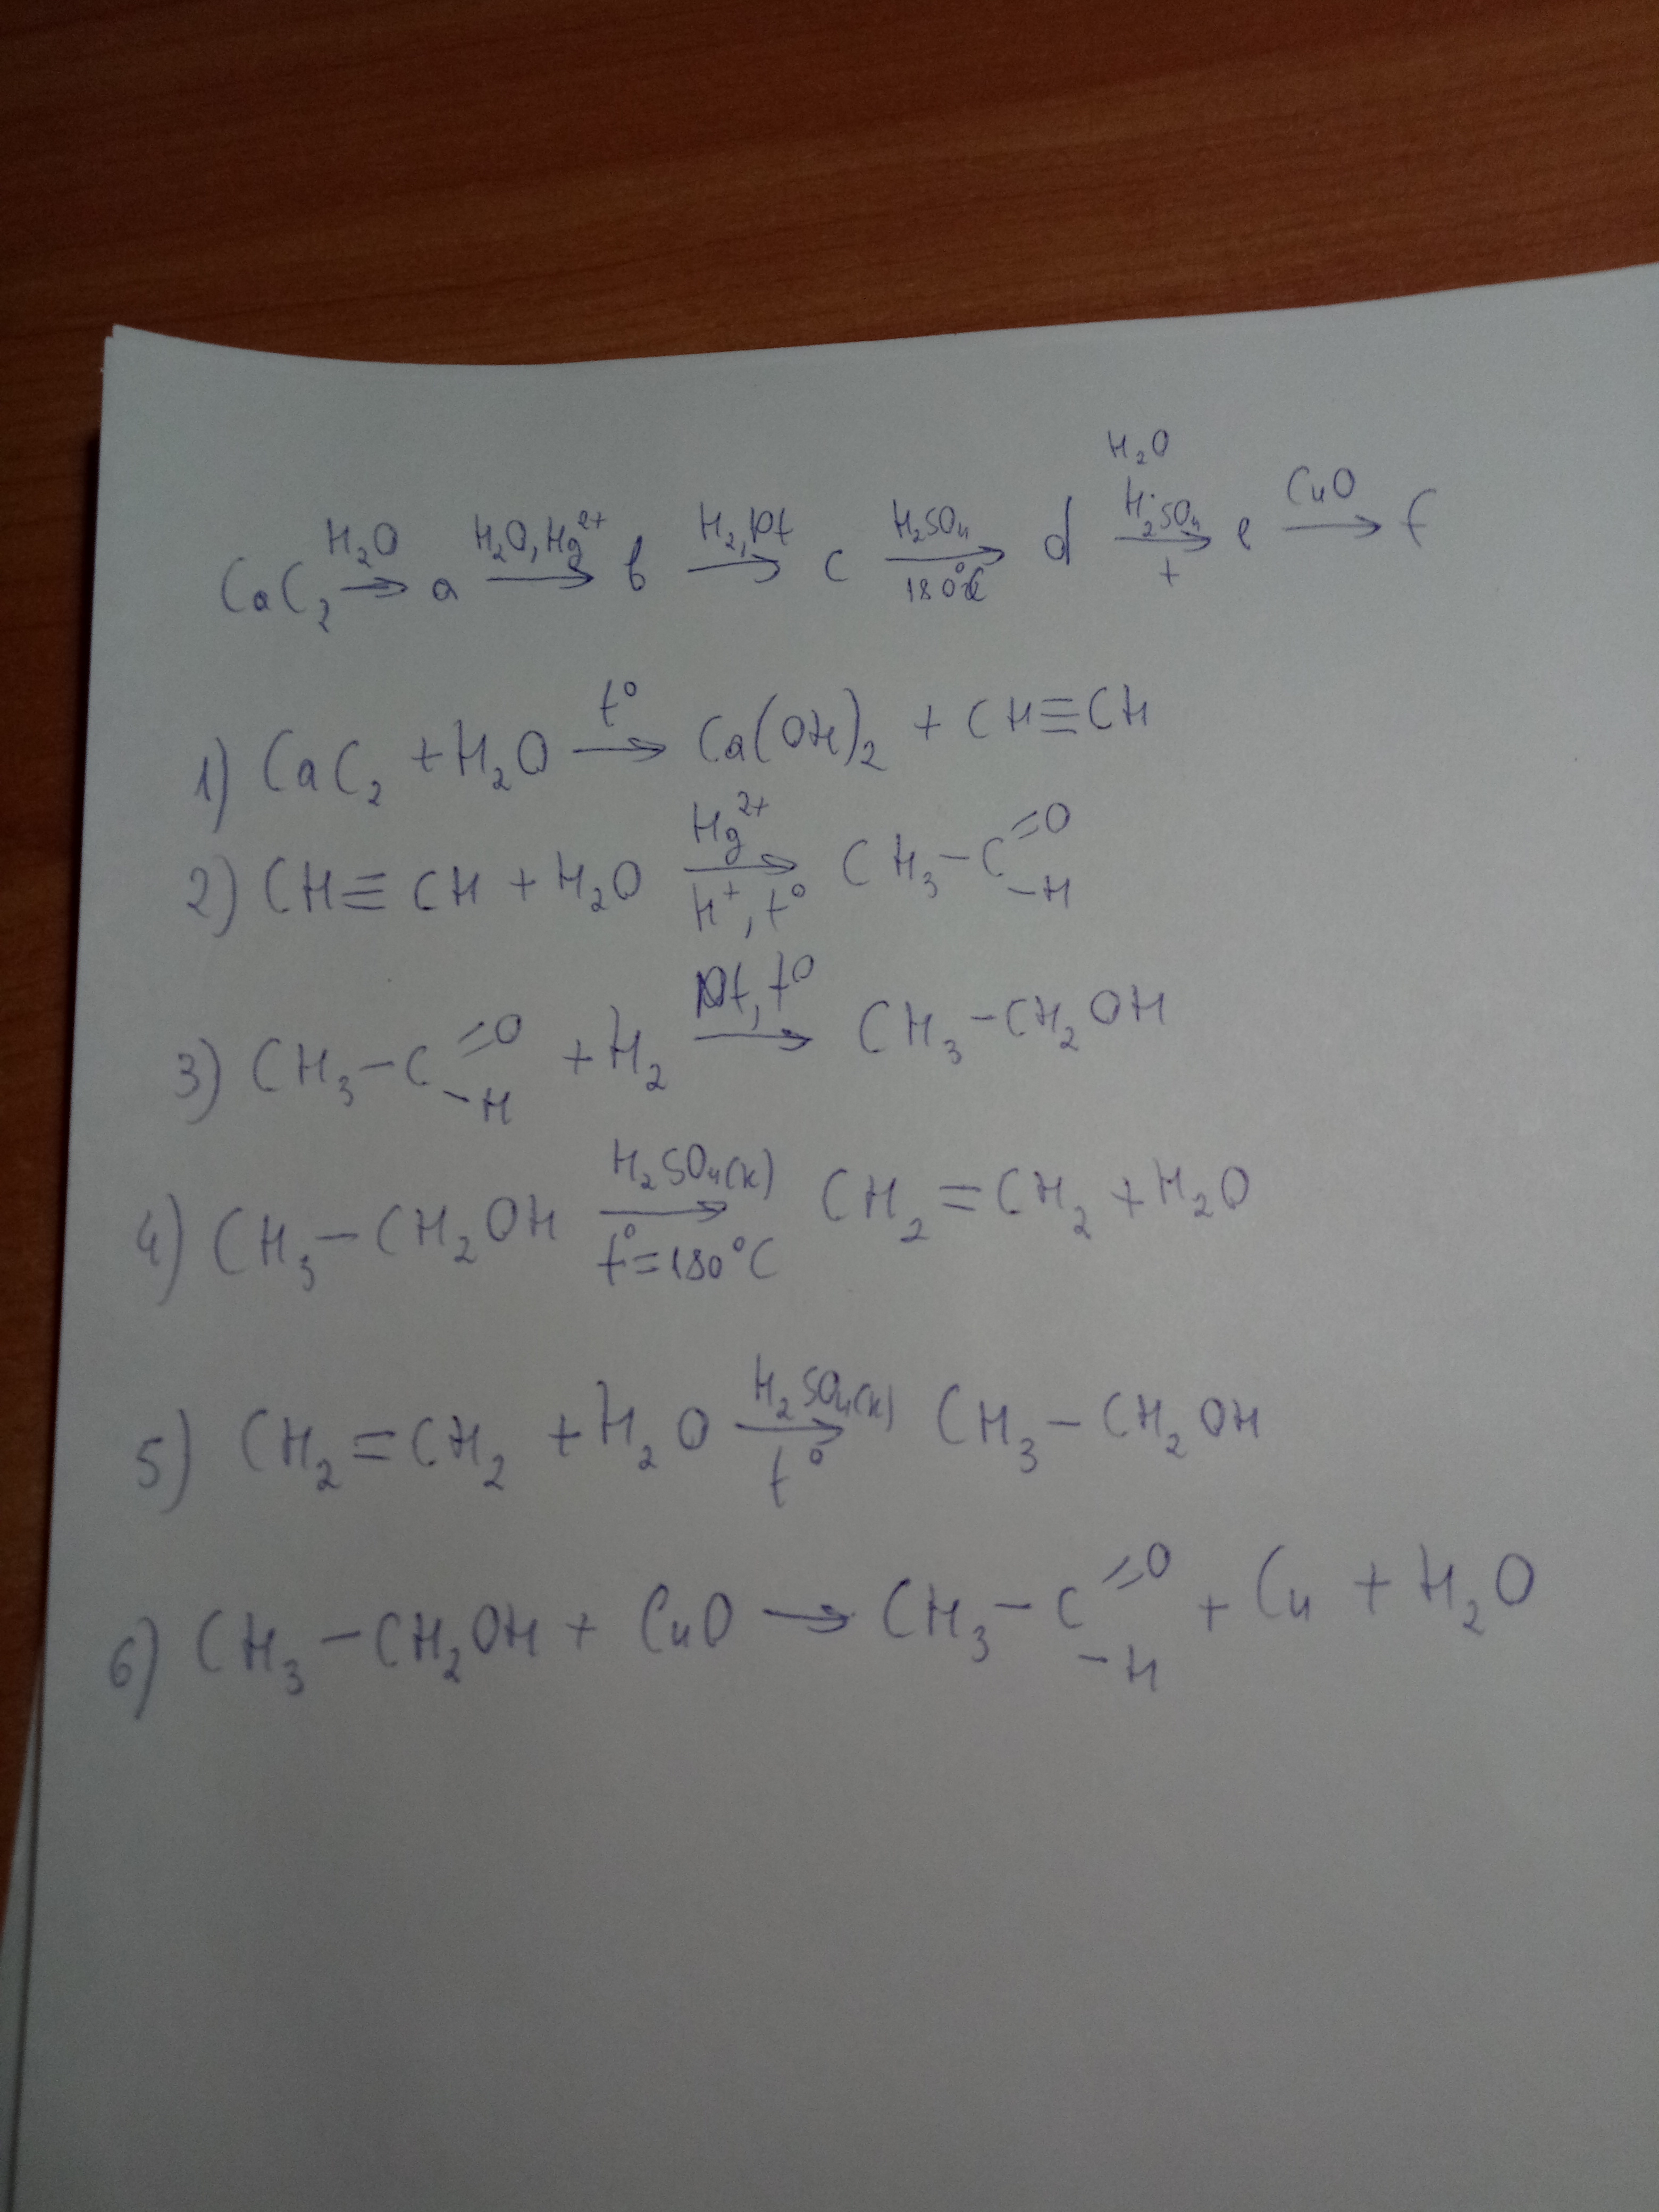 CaC₂ —H₂O→ a —H₂O, Hg²⁺→ b —H₂, Pt→ c —H₂SO₄ 180°C→ d —H₂O H₂SO₄ t→ e —CuO→ f
1) CaC₂ + H₂O —t°→ Ca(OH)₂ + CH≡CH
2) CH≡CH + H₂O —Hg²⁺ H⁺, t°→ CH₃–C=O –H
3) CH₃–C=O –H + H₂ —Pt, t°→ CH₃–CH₂OH
4) CH₃–CH₂OH —H₂SO₄(к) t°=180°C→ CH₂=CH₂ + H₂O
5) CH₂=CH₂ + H₂O —H₂SO₄(к) t°→ CH₃–CH₂OH
6) CH₃–CH₂OH + CuO → CH₃–C=O –H + Cu + H₂O